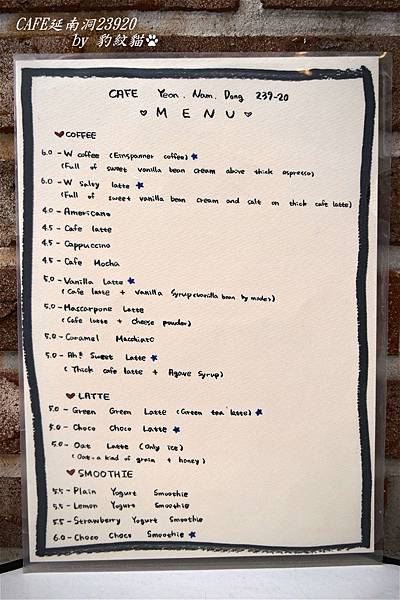 CAFE延南洞23920
by 豹紋貓
CAFE Yeon. Nam. Dong 239-20
MENU
COFFEE
6.0 - W coffee (Einspanner coffee)
(Full of sweet vanilla bean cream above thick espresso)
6.0 - W Salty latte
(Full of sweet vanilla bean cream and salt on thick cafe latte)
4.0 - Americano
4.5 - Cafe latte
4.5 - Cappuccino
4.5 - Cafe Mocha
5.0 - Vanilla Latte
(Cafe latte + vanilla syrup (vanilla bean by made))
5.0 - Mascarpone Latte
(Cafe latte + cheese powder)
5.0 - Caramel Macchiato
5.0 - Ah! Sweet Latte
(Thick cafe latte + Agave Syrup)
LATTE
5.0 - Green Green Latte (Green tea latte)
5.0 - Choco Choco Latte
5.0 - Oat Latte (Only ice)
(Oat = a kind of grain + honey)
SMOOTHIE
5.5 - Plain Yogurt Smoothie
5.5 - Lemon Yogurt Smoothie
5.5 - Strawberry Yogurt Smoothie
6.0 - Choco Choco Smoothie